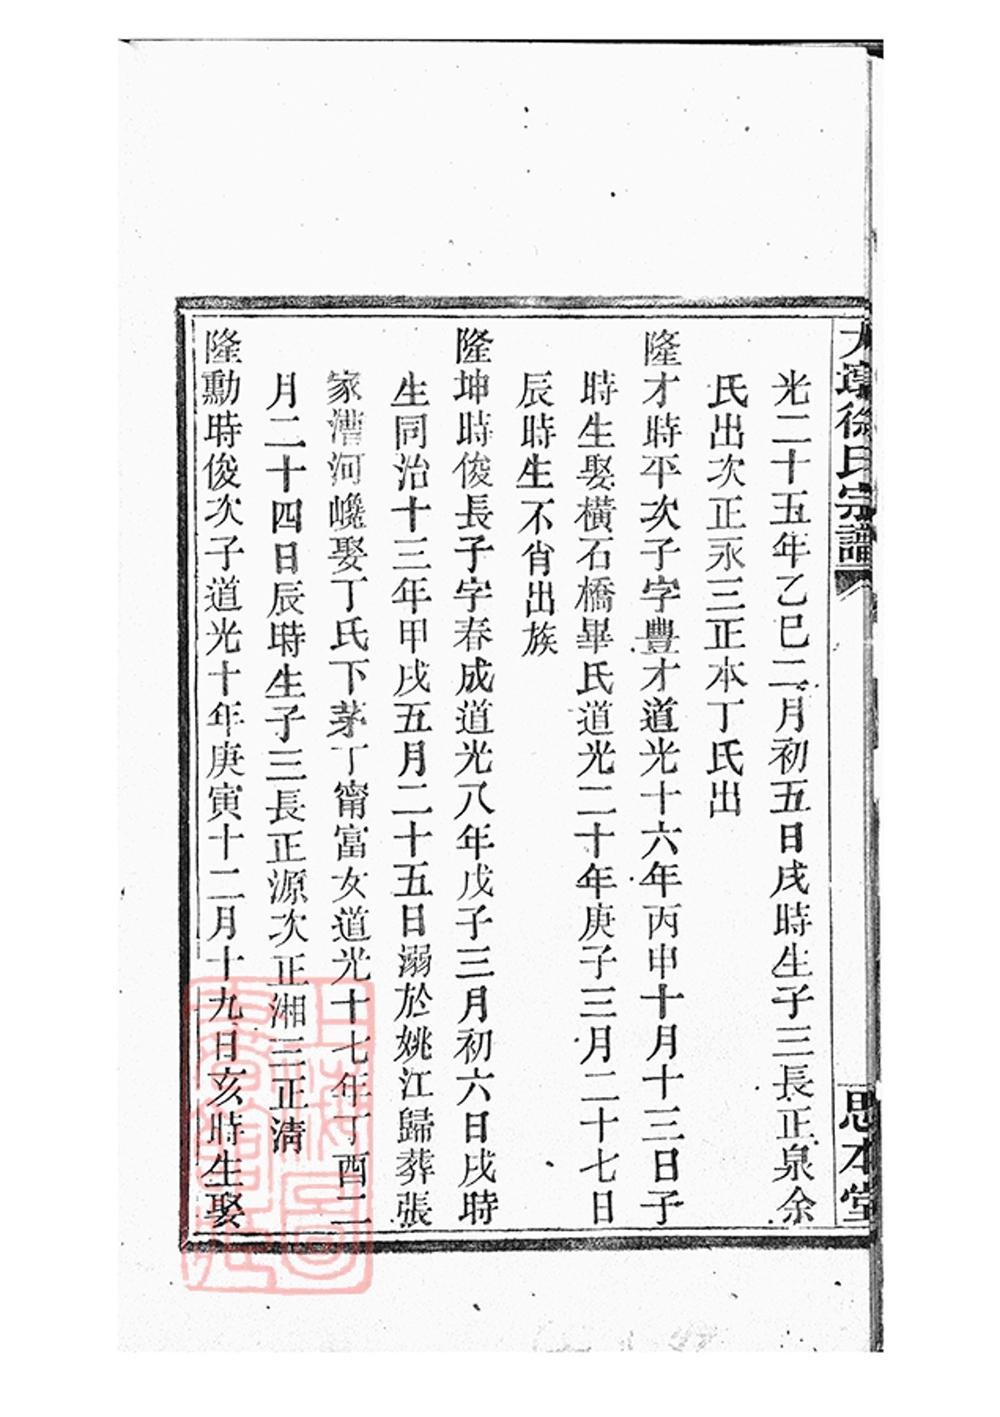 徐氏宗譜
思本堂
光二十五年乙巳二月初五日戌時生子三長正泉余
氏出次正永三正本丁氏出
隆才時平次子字豐才道光十六年丙申十月十三日子
時生娶橫石橋畢氏道光二十年庚子三月二十七日
辰時生不肖出族
隆坤時俊長子字春成道光八年戊子三月初六日戌時
生同治十三年甲戌五月二十五日溺於姚江歸葬張
家漕河巉娶丁氏下茅丁甯富女道光十七年丁酉二
月二十四日辰時生子三長正源次正湘三正清
隆勳時俊次子道光十年庚寅十二月十九日亥時生娶
上海圖
書館藏